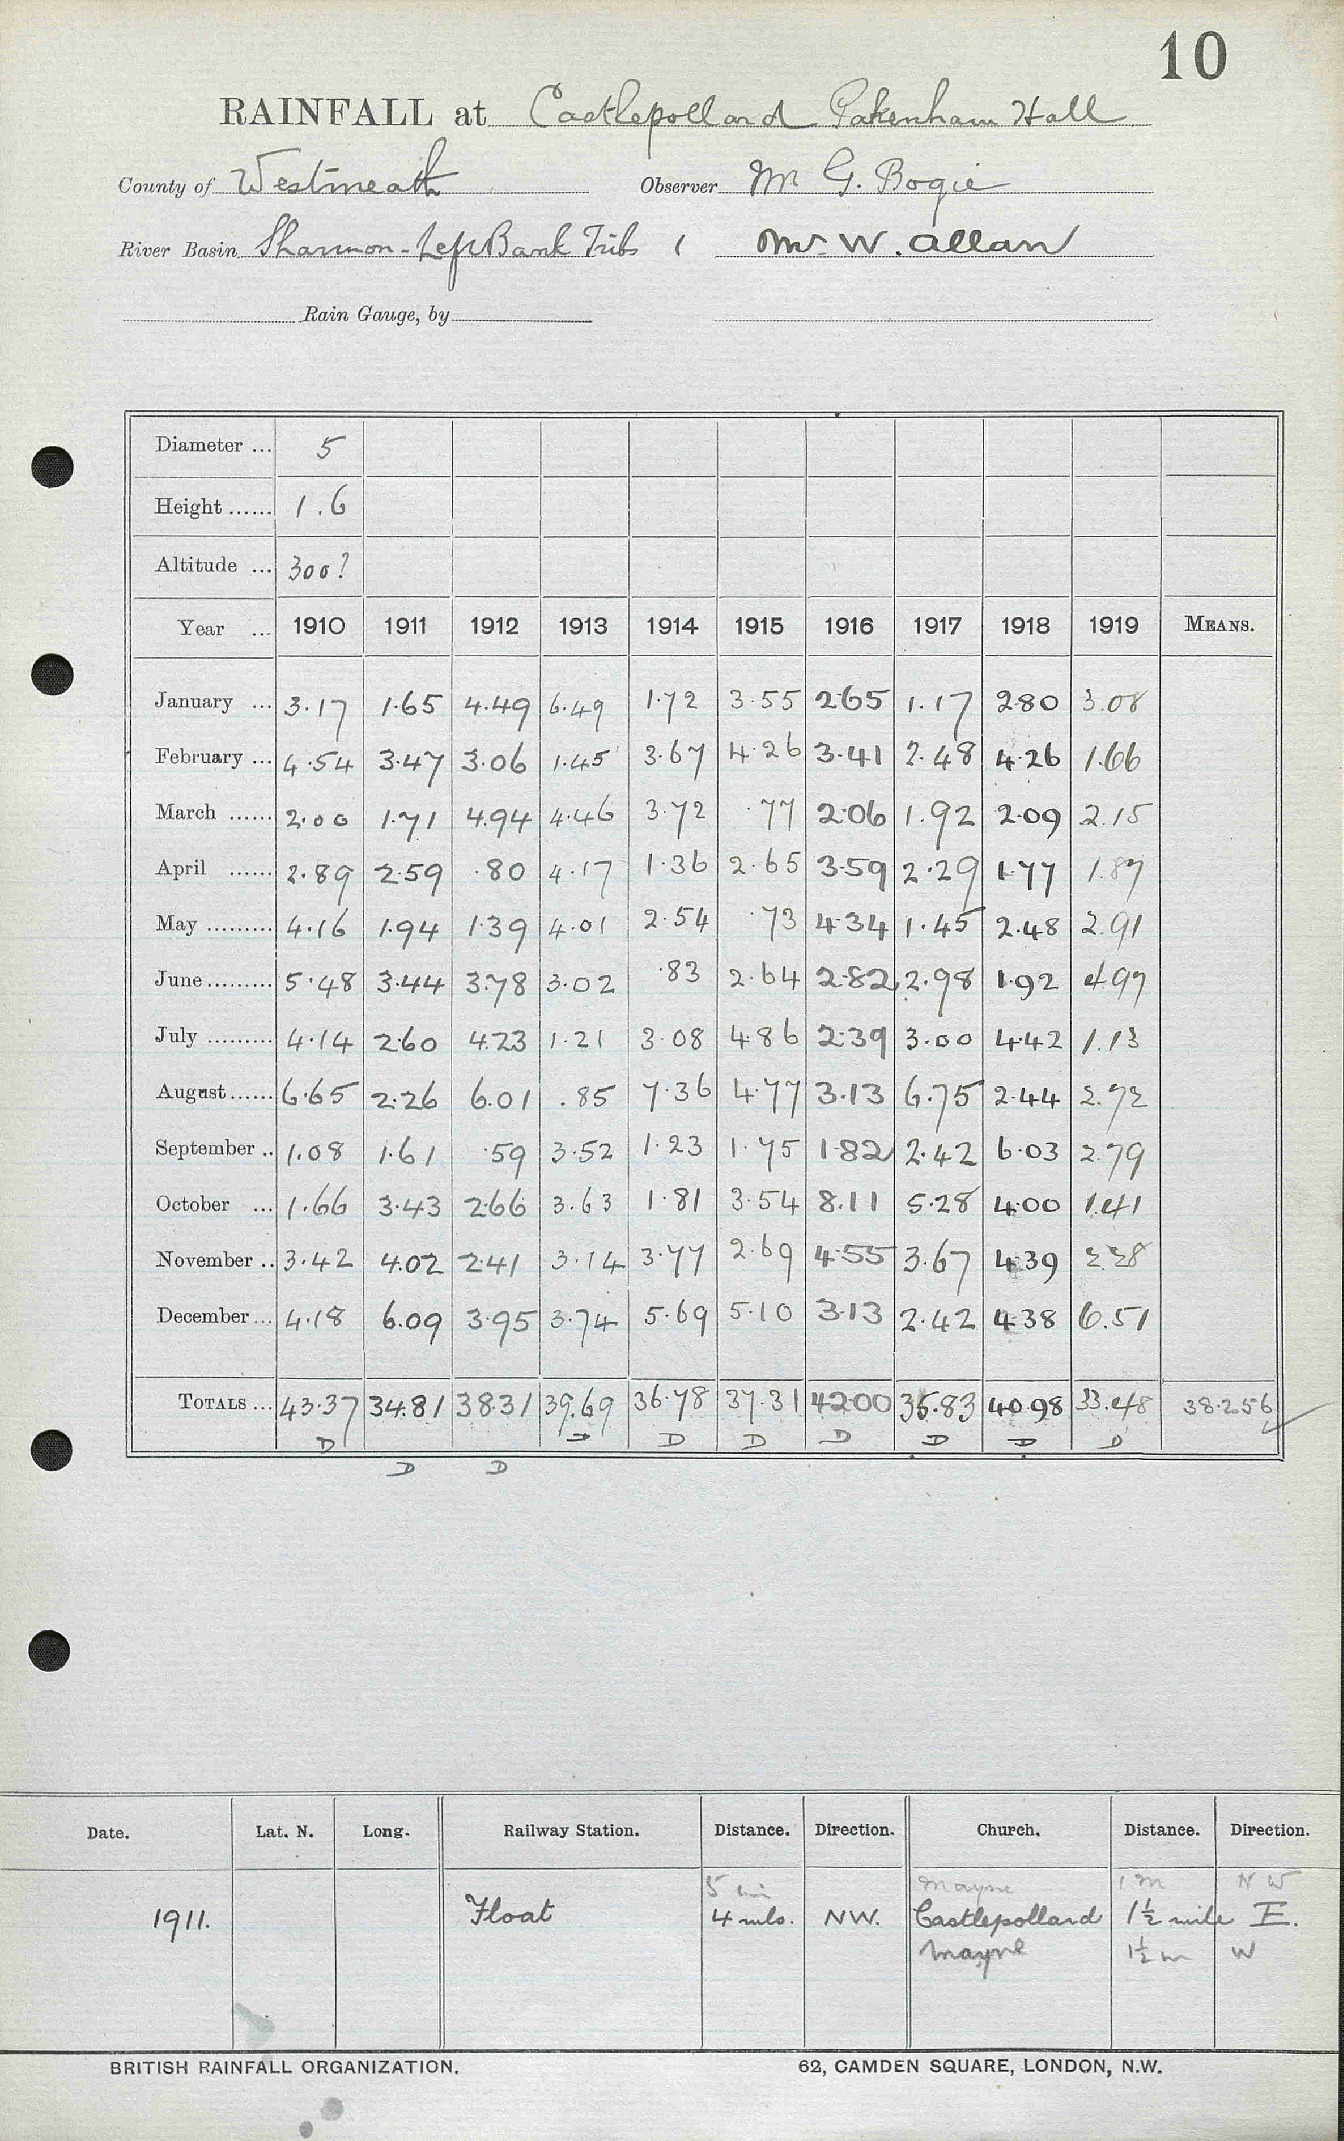 10
RAINFALL at Castlepollard Pakenham Hall
County of Westmeath Observer Mr G. Bogie
River Basin Shannon - Left Bank Tribs ( Mr. W. Allan
Rain Gauge, by
Diameter ... 5
Height ...... 1.6
Altitude ... 300?
Year ... 1910 1911 1912 1913 1914 1915 1916 1917 1918 1919 MEANS.
January ... 3.17 1.65 4.49 6.49 1.72 3.55 2.65 1.17 2.80 3.08
February ... 4.54 3.47 3.06 1.45 3.67 4.26 3.41 2.48 4.26 1.66
March ...... 2.00 1.71 4.94 4.46 3.72 .77 2.06 1.92 2.09 2.15
April ...... 2.89 2.59 .80 4.17 1.36 2.65 3.59 2.29 1.77 1.87
May ......... 4.16 1.94 1.39 4.01 2.54 .73 4.34 1.45 2.48 2.91
June ......... 5.48 3.44 3.78 3.02 .83 2.64 2.82 2.98 1.92 4.97
July ......... 4.14 2.60 4.23 1.21 3.08 4.86 2.39 3.00 4.42 1.13
August ...... 6.65 2.26 6.01 .85 7.36 4.77 3.13 6.75 2.44 2.72
September .. 1.08 1.61 .59 3.52 1.23 1.75 1.82 2.42 6.03 2.79
October ... 1.66 3.43 2.66 3.63 1.81 3.54 8.11 5.28 4.00 1.41
November .. 3.42 4.02 2.41 3.14 3.77 2.69 4.55 3.67 4.39 2.28
December ... 4.18 6.09 3.95 3.74 5.69 5.10 3.13 2.42 4.38 6.51
TOTALS ... 43.37 34.81 38.31 39.69 36.78 37.31 42.00 35.83 40.98 33.48 38.256
D D D D D D D D
D D
Date. Lat. N. Long. Railway Station. Distance. Direction. Church. Distance. Direction.
5 Mayne 1 m NW
1911. Float 4 mls. NW. Castlepollard 1½ mile E.
Mayne 1½ m W
BRITISH RAINFALL ORGANIZATION. 62, CAMDEN SQUARE, LONDON, N.W.